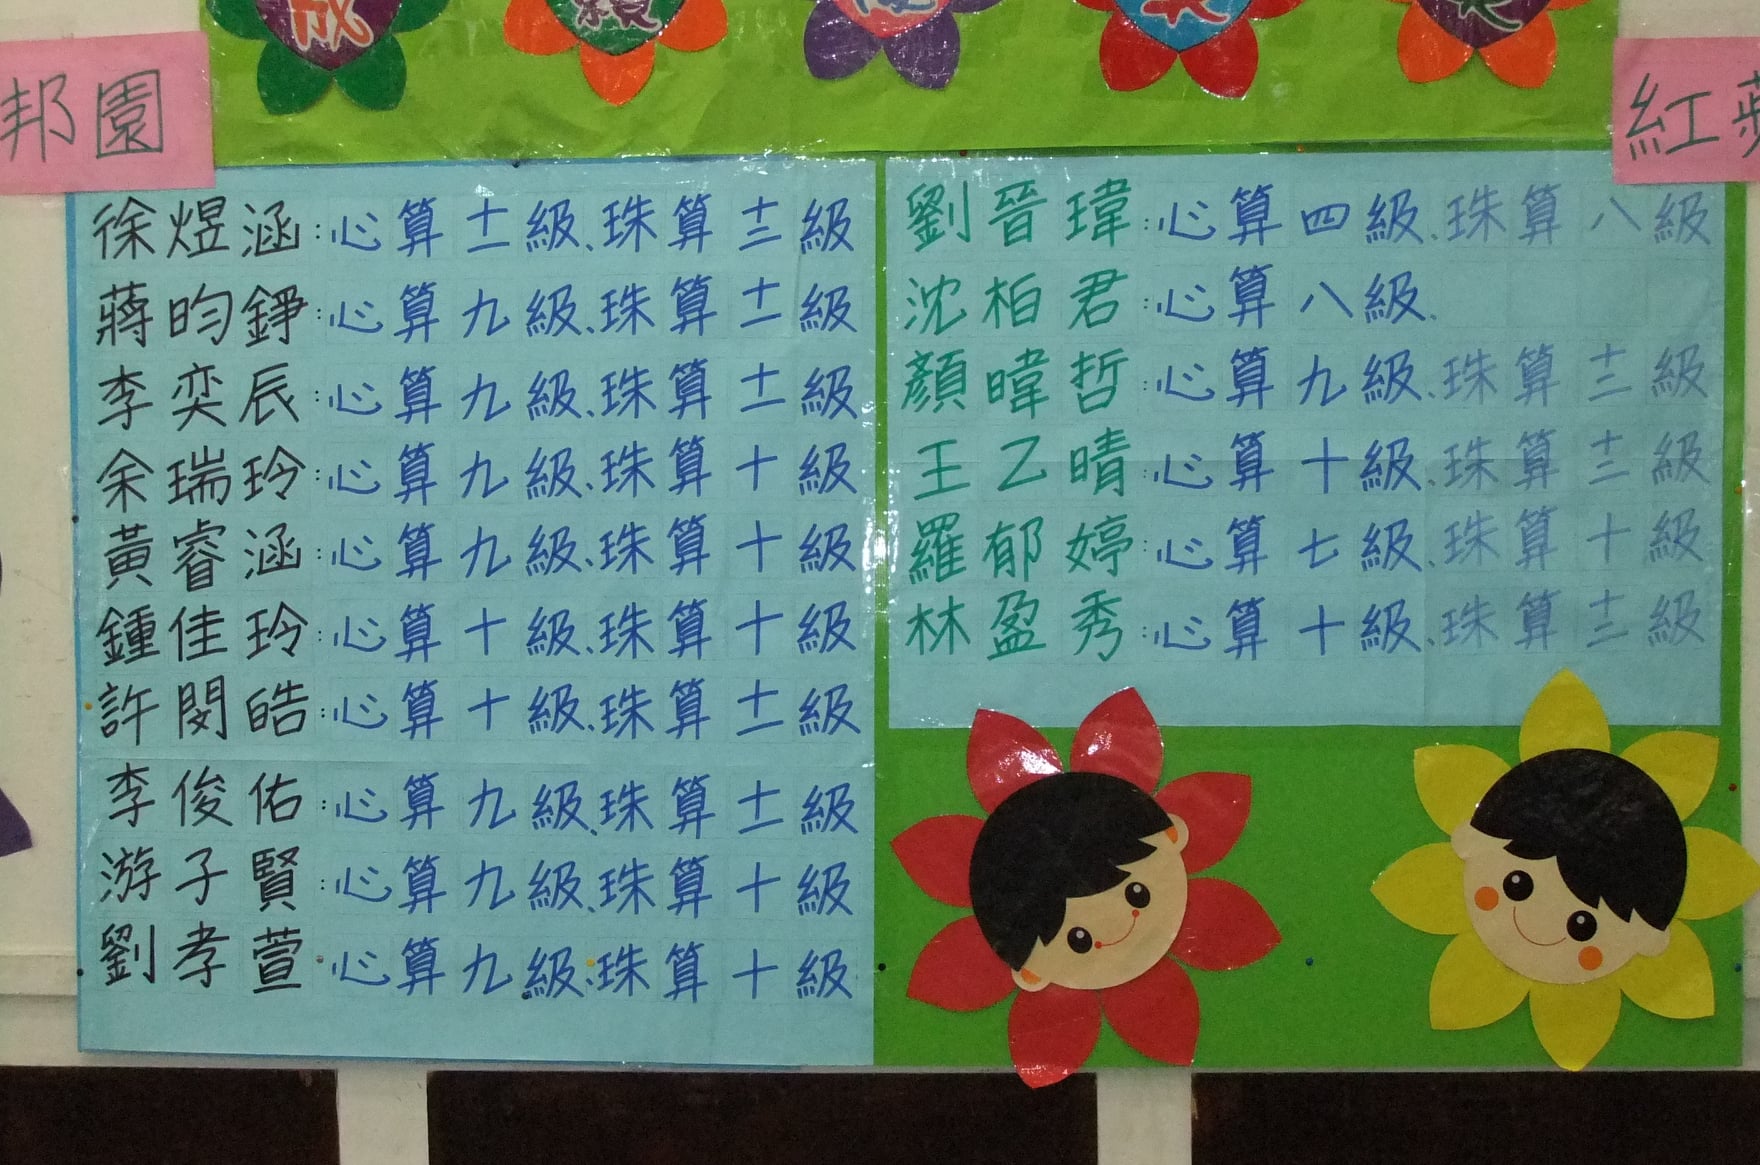 邦園
紅
徐煜涵:心算十一級、珠算十三級
蔣昀錚:心算九級、珠算十一級
李奕辰:心算九級、珠算十一級
余瑞玲:心算九級、珠算十級
黃睿涵:心算九級、珠算十級
鍾佳玲:心算十級、珠算十級
許閔皓:心算十級、珠算十二級
李俊佑:心算九級、珠算十一級
游子賢:心算九級、珠算十級
劉孝萱:心算九級、珠算十級
劉晉瑋:心算四級、珠算八級
沈柏君:心算八級、
顏暐哲:心算九級、珠算十三級
王乙晴:心算十級、珠算十三級
羅郁婷:心算七級、珠算十級
林盈秀:心算十級、珠算十三級